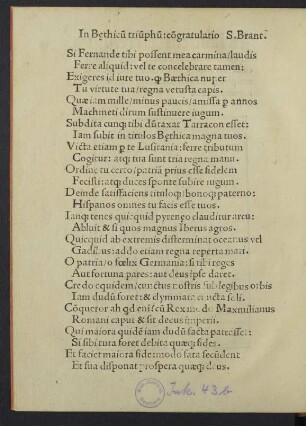 In Bęthicū triūphū: cōgratulatio S. Brant.
Si Fernande tibi possent mea carmina/laudis
Ferre aliquid: vel te concelebrare tamen:
Exigeres id iure tuo. ꝙ Bæthica nuper
Tu virtute tua/regna vetusta capis.
Quæ iam mille/minus paucis/amissa ꝑ annos
Machmeti dirum sustinuere iugum.
Subdita cunꝗ tibi dūtaxat Tarracon esset:
Iam subit in titulos Bęthica magna tuos.
Victa etiam ꝑ te Lusitania: ferre tributum
Cogitur: atꝗ tua sunt tria regna manu.
Ordine tu certo/patriā prius esse fidelem
Fecisti: atꝗ duces sponte subire iugum.
Deinde satisfaciens tituloꝗ/bonoꝗ paterno:
Hispanos omnes tu facis esse tuos.
Ianꝗ tenes quicquid pyreneo clauditur arcu:
Abluit & si quos magnus Iberus agros.
Quicquid ab extremis disterminat oceanus vel
Gadibus: addo etiam regna reperta mari.
O patria/o fœlix Germania: si tibi reges
Aut fortuna pares: aut deus ipse daret.
Credo equidem/cunctos nostris sub legibus orbis
Iam dudū foret: & clymmata cuncta soli.
Cōqueror ah qd eni secū Rex
Maximilianus
Romani caput & sit decus imperii.
Qui maiora quidē iam dudū facta patrasset:
Si sibi tuta foret debita quæꝗ fides.
Et faciet maiora fide: modo fata secūdent
Et sua disponat prospera quæꝗ deus.
Ink. 43.b